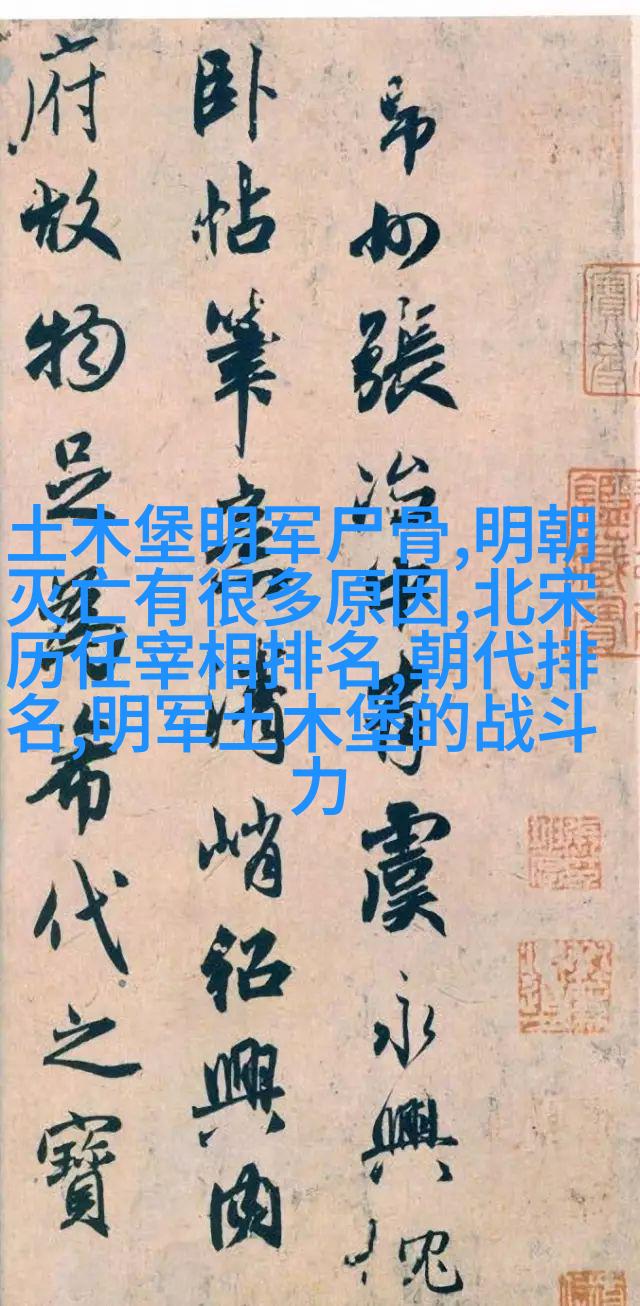 州張治中有虞永興
卧帖筆意清峭紹興内
府故物足為希代之寶
土木堡明军尸骨,明朝
灭亡有很多原因,北宋
历任宰相排名,朝代排
名,明军土木堡的战斗
力